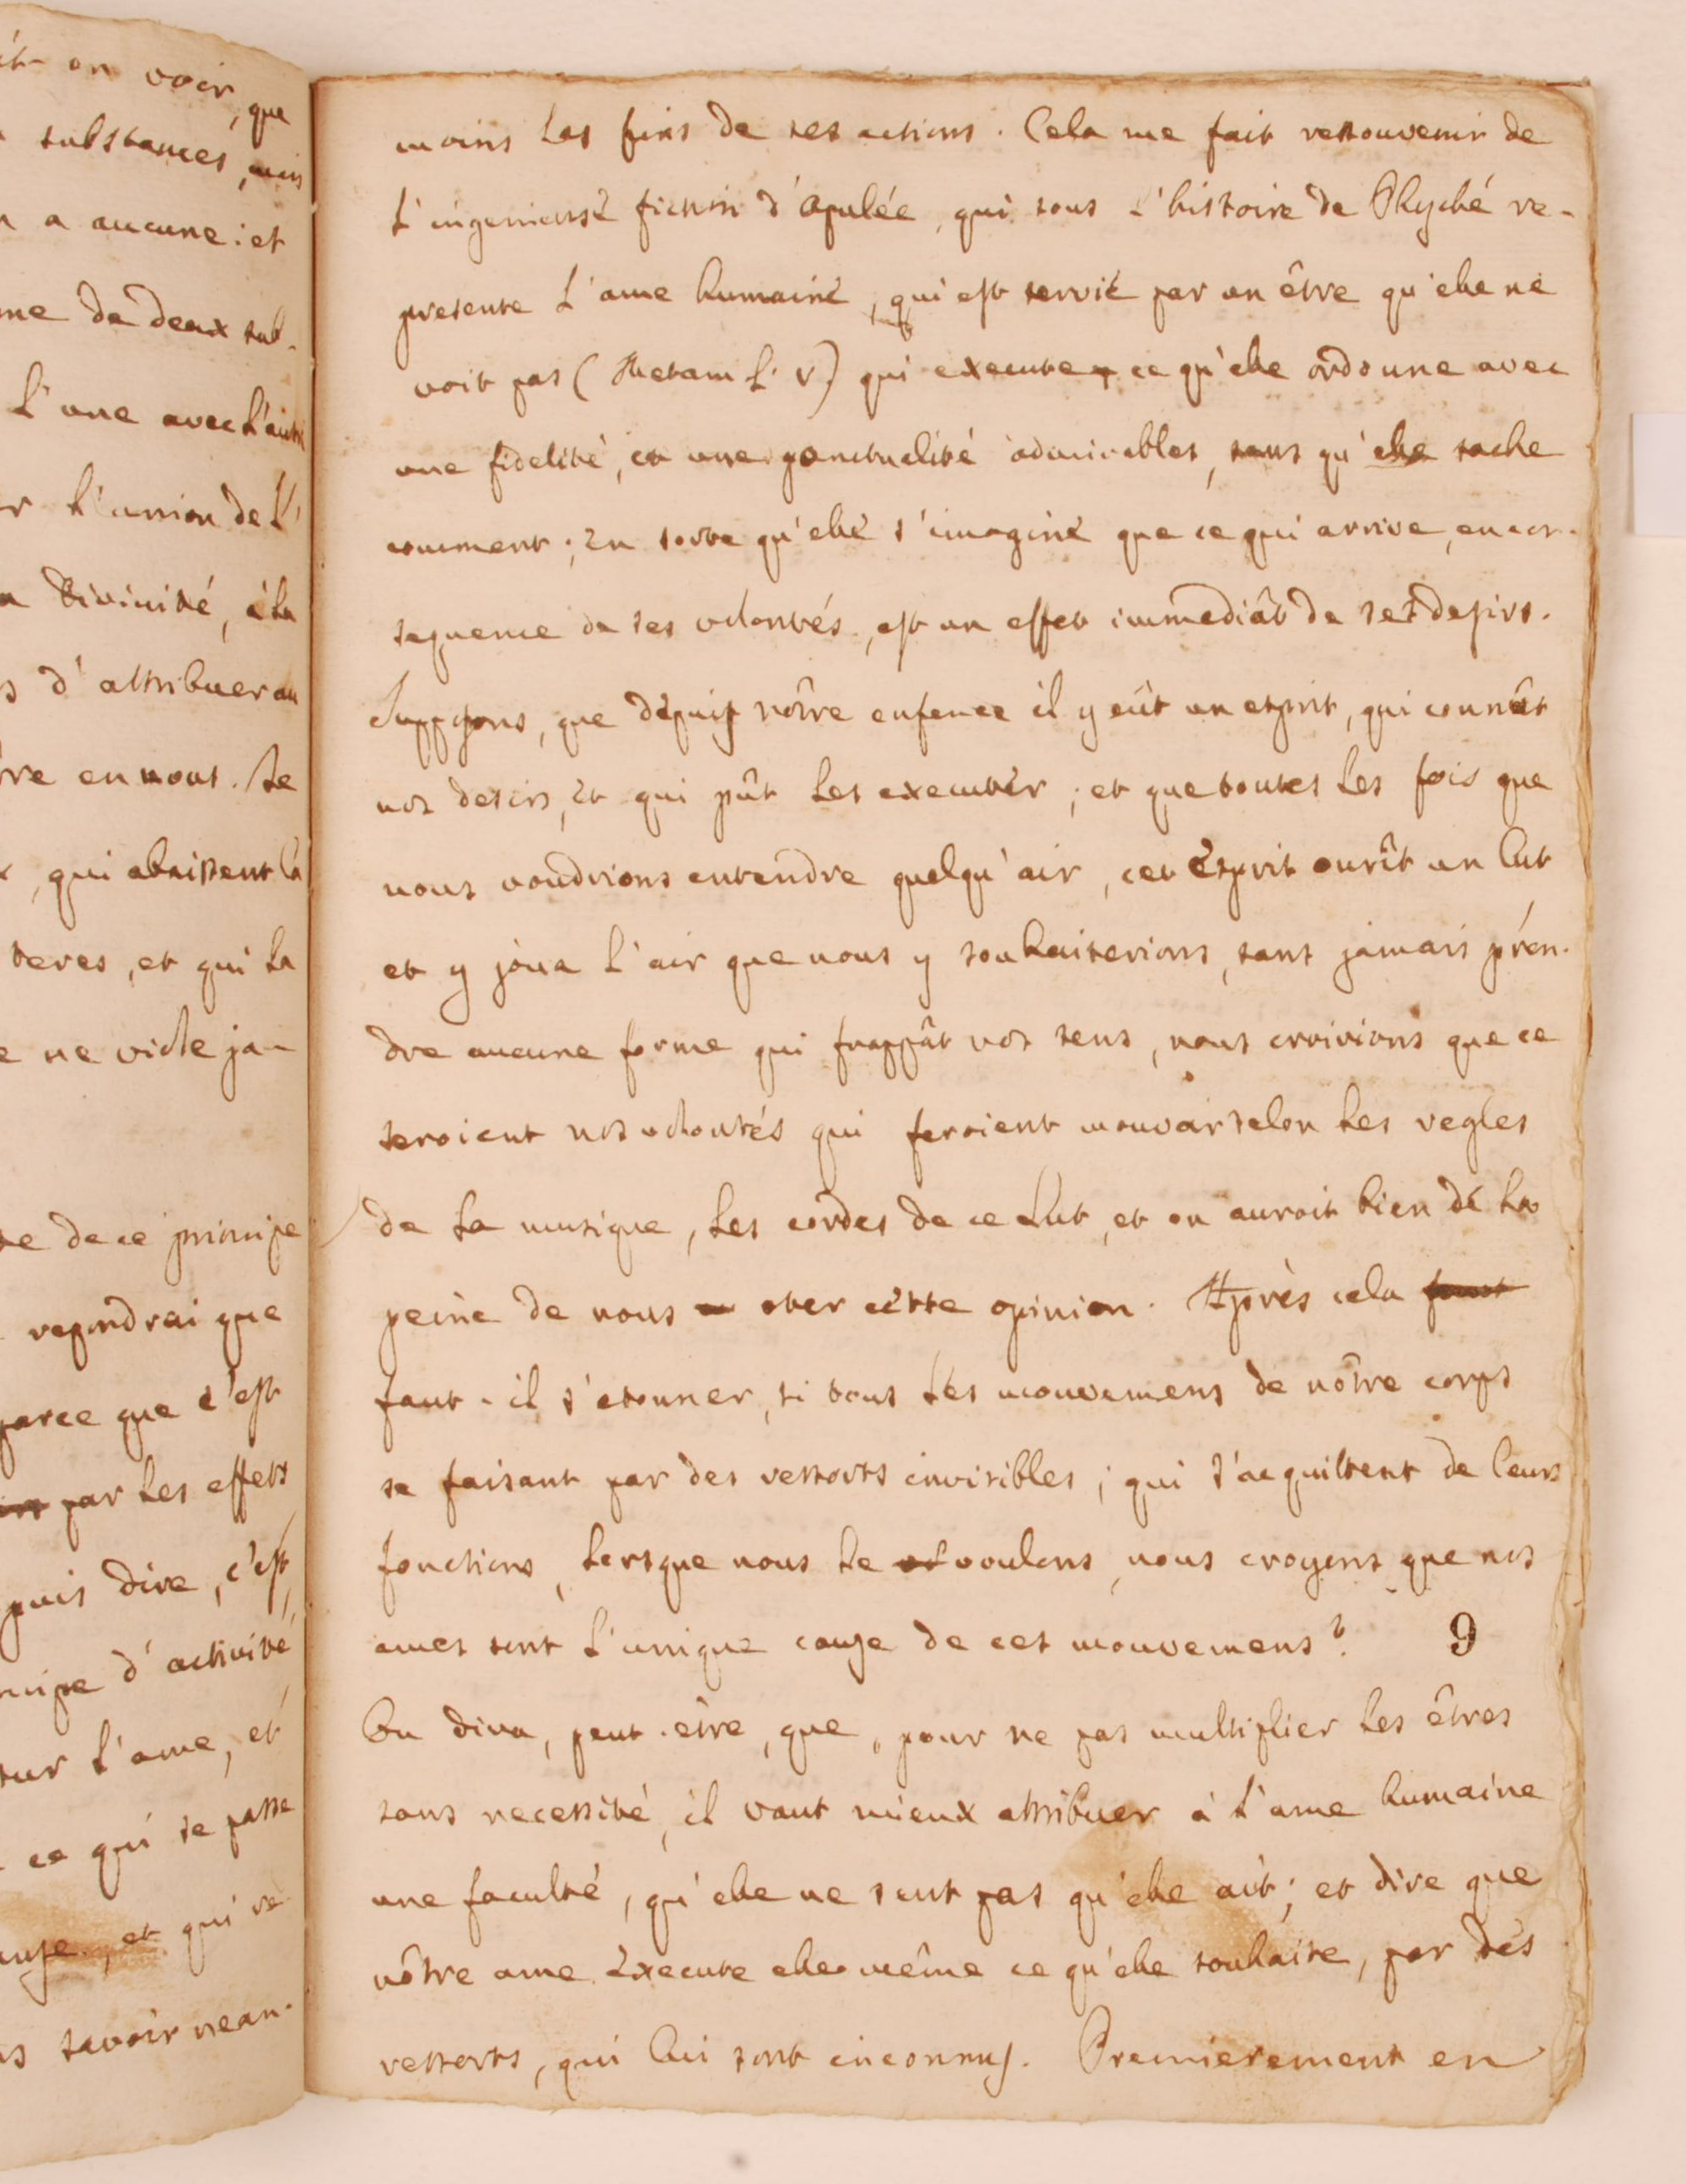 ét on voir, que
substances, mais
n a aucune: et
me de deux sub-
l'une avec l'autre
r l'union de l'
a Divinité, à la
s d'attribuer au
re en nous. Le
x, qui abaissent la
teres, et qui la
e ne viole ja-
se de ce principe
repondrai que
parce que c'est
par les effets
puis dire, c'est,
ncipe d'activité
sur l'ame, et
ce qui se passe
ange, et qui re
s savoir nean-
moins les fins de ses actions. Cela me fait ressouvenir de
l'ingenieuse fiction d'Apulée, qui sous l'histoire de Phyché re-
presente l'ame humaine, qui est servie par un être qu'elle ne
voit pas (Metam l. V) qui execute ce qu'elle ordonne avec
une fidelité, et une ponctualité admirables, sans qu'elle sache
comment; En sorte qu'elle s'imagine que ce qui arrive, en con-
sequence de ses volontés, est un effet immediat de ses desirs.
Supposons, que depuis nôtre enfence il y eût un esprit, qui connût
nos desirs, et qui pût les executer; et que toutes les fois que
nous voudrions entendre quelqu'air, cet Esprit ourît un lut
et y joua l'air que nous y souhaiterions, sans jamais pren-
dre aucune forme qui frappât nos sens, nous croirions que ce
seroient nos volontés qui feroient mouvoir selon les regles
de la musique, les cordes de ce Lut, et on auroit bien de la
peine de nous oter cette opinion. Après cela faut
faut-il s'etonner, si tous les mouvemens de nôtre corps
se faisant par des ressorts invisibles; qui s'acquittent de leurs
fonctions, lorsque nous le voulons, nous croyons que nos
ames sont l'unique cause de ces mouvemens? 9
On dira, peut-être, que, pour ne pas multiplier les êtres
sans necessité, il vaut mieux attribuer à l'ame humaine
une faculté, qu'elle ne sent pas qu'elle ait; et dire que
nôtre ame execute elle même ce qu'elle souhaite, par des
ressorts, qui lui sont inconnus. Premierement en